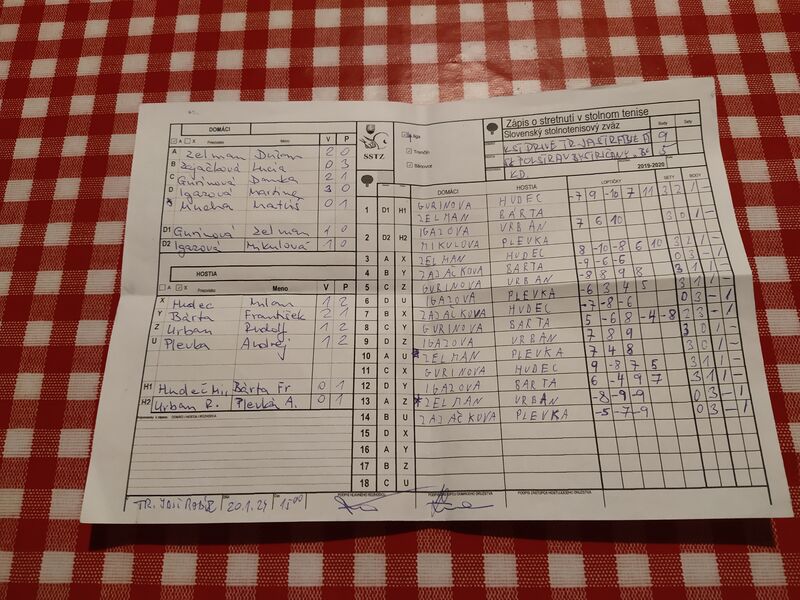 DOMÁCI
A X Priezvisko Meno V P
A Zelman Dušan 2 0
B Zajačková Lucia 0 3
C Gurínová Danka 2 1
D Igazová Martina 3 0
* Mucha Matúš 0 1
D1 Gurínová Zelman 1 0
D2 Igazová Mikulová 1 0
HOSTIA
A X Priezvisko Meno V P
X Hudec Milan 1 2
Y Bárta František 2 1
Z Urban Rudolf 1 2
U Plevka Andrej 1 2
H1 Hudec Mi., Bárta Fr 0 1
H2 Urban R. Plevka A. 0 1
SSTZ
liga
Trenčín
Bánovce
Zápis o stretnutí v stolnom tenise
Slovenský stolnotenisový zväz
Body
9
5
KD.
2019-2020
DOMÁCI HOSTIA LOPTIČKY SETY BODY
1 D1 H1 GURINOVA HUDEC -7 9 -10 7 11 3 2 1 -
ZELMAN BÁRTA
2 D2 H2 IGAZOVÁ URBAN 7 6 10 3 0 1 -
MIKULOVÁ PLEVKA
3 A X ZELMAN HUDEC 8 -10 -8 6 10 3 2 1 -
4 B Y ZAJAČKOVA BARTA -9 -6 -6 0 3 - 1
5 C Z GURINOVA URBAN -8 8 9 8 3 1 1 -
6 D U IGAZOVÁ PLEVKA -6 3 4 5 3 1 1 -
7 B X ZAJAČKOVA HUDEC -7 -8 -6 0 3 - 1
8 C Y GURINOVA BARTA 5 -6 8 -4 -8 2 3 - 1
9 D Z IGAZOVA URBÁN 7 8 9 3 0 1 -
10 A U * ZELMAN PLEVKA 7 4 8 3 0 1 -
11 C X GURINOVA HUDEC 9 -8 7 5 3 1 1 -
12 D Y IGAZOVA BARTA 6 -4 9 7 3 1 1 -
13 A Z * ZELMAN URBAN -8 -9 -9 0 3 - 1
14 B U ZAJAČKOVA PLEVKA -5 -7 -9 0 3 - 1
15 D X
16 A Y
17 B Z
18 C U
PODPIS HLAVNÉHO ROZHODCU PODPIS ZÁSTUPCU DOMÁCEHO DRUŽSTVA PODPIS ZÁSTUPCU HOSŤUJÚCEHO DRUŽSTVA
20.1.24 15 00